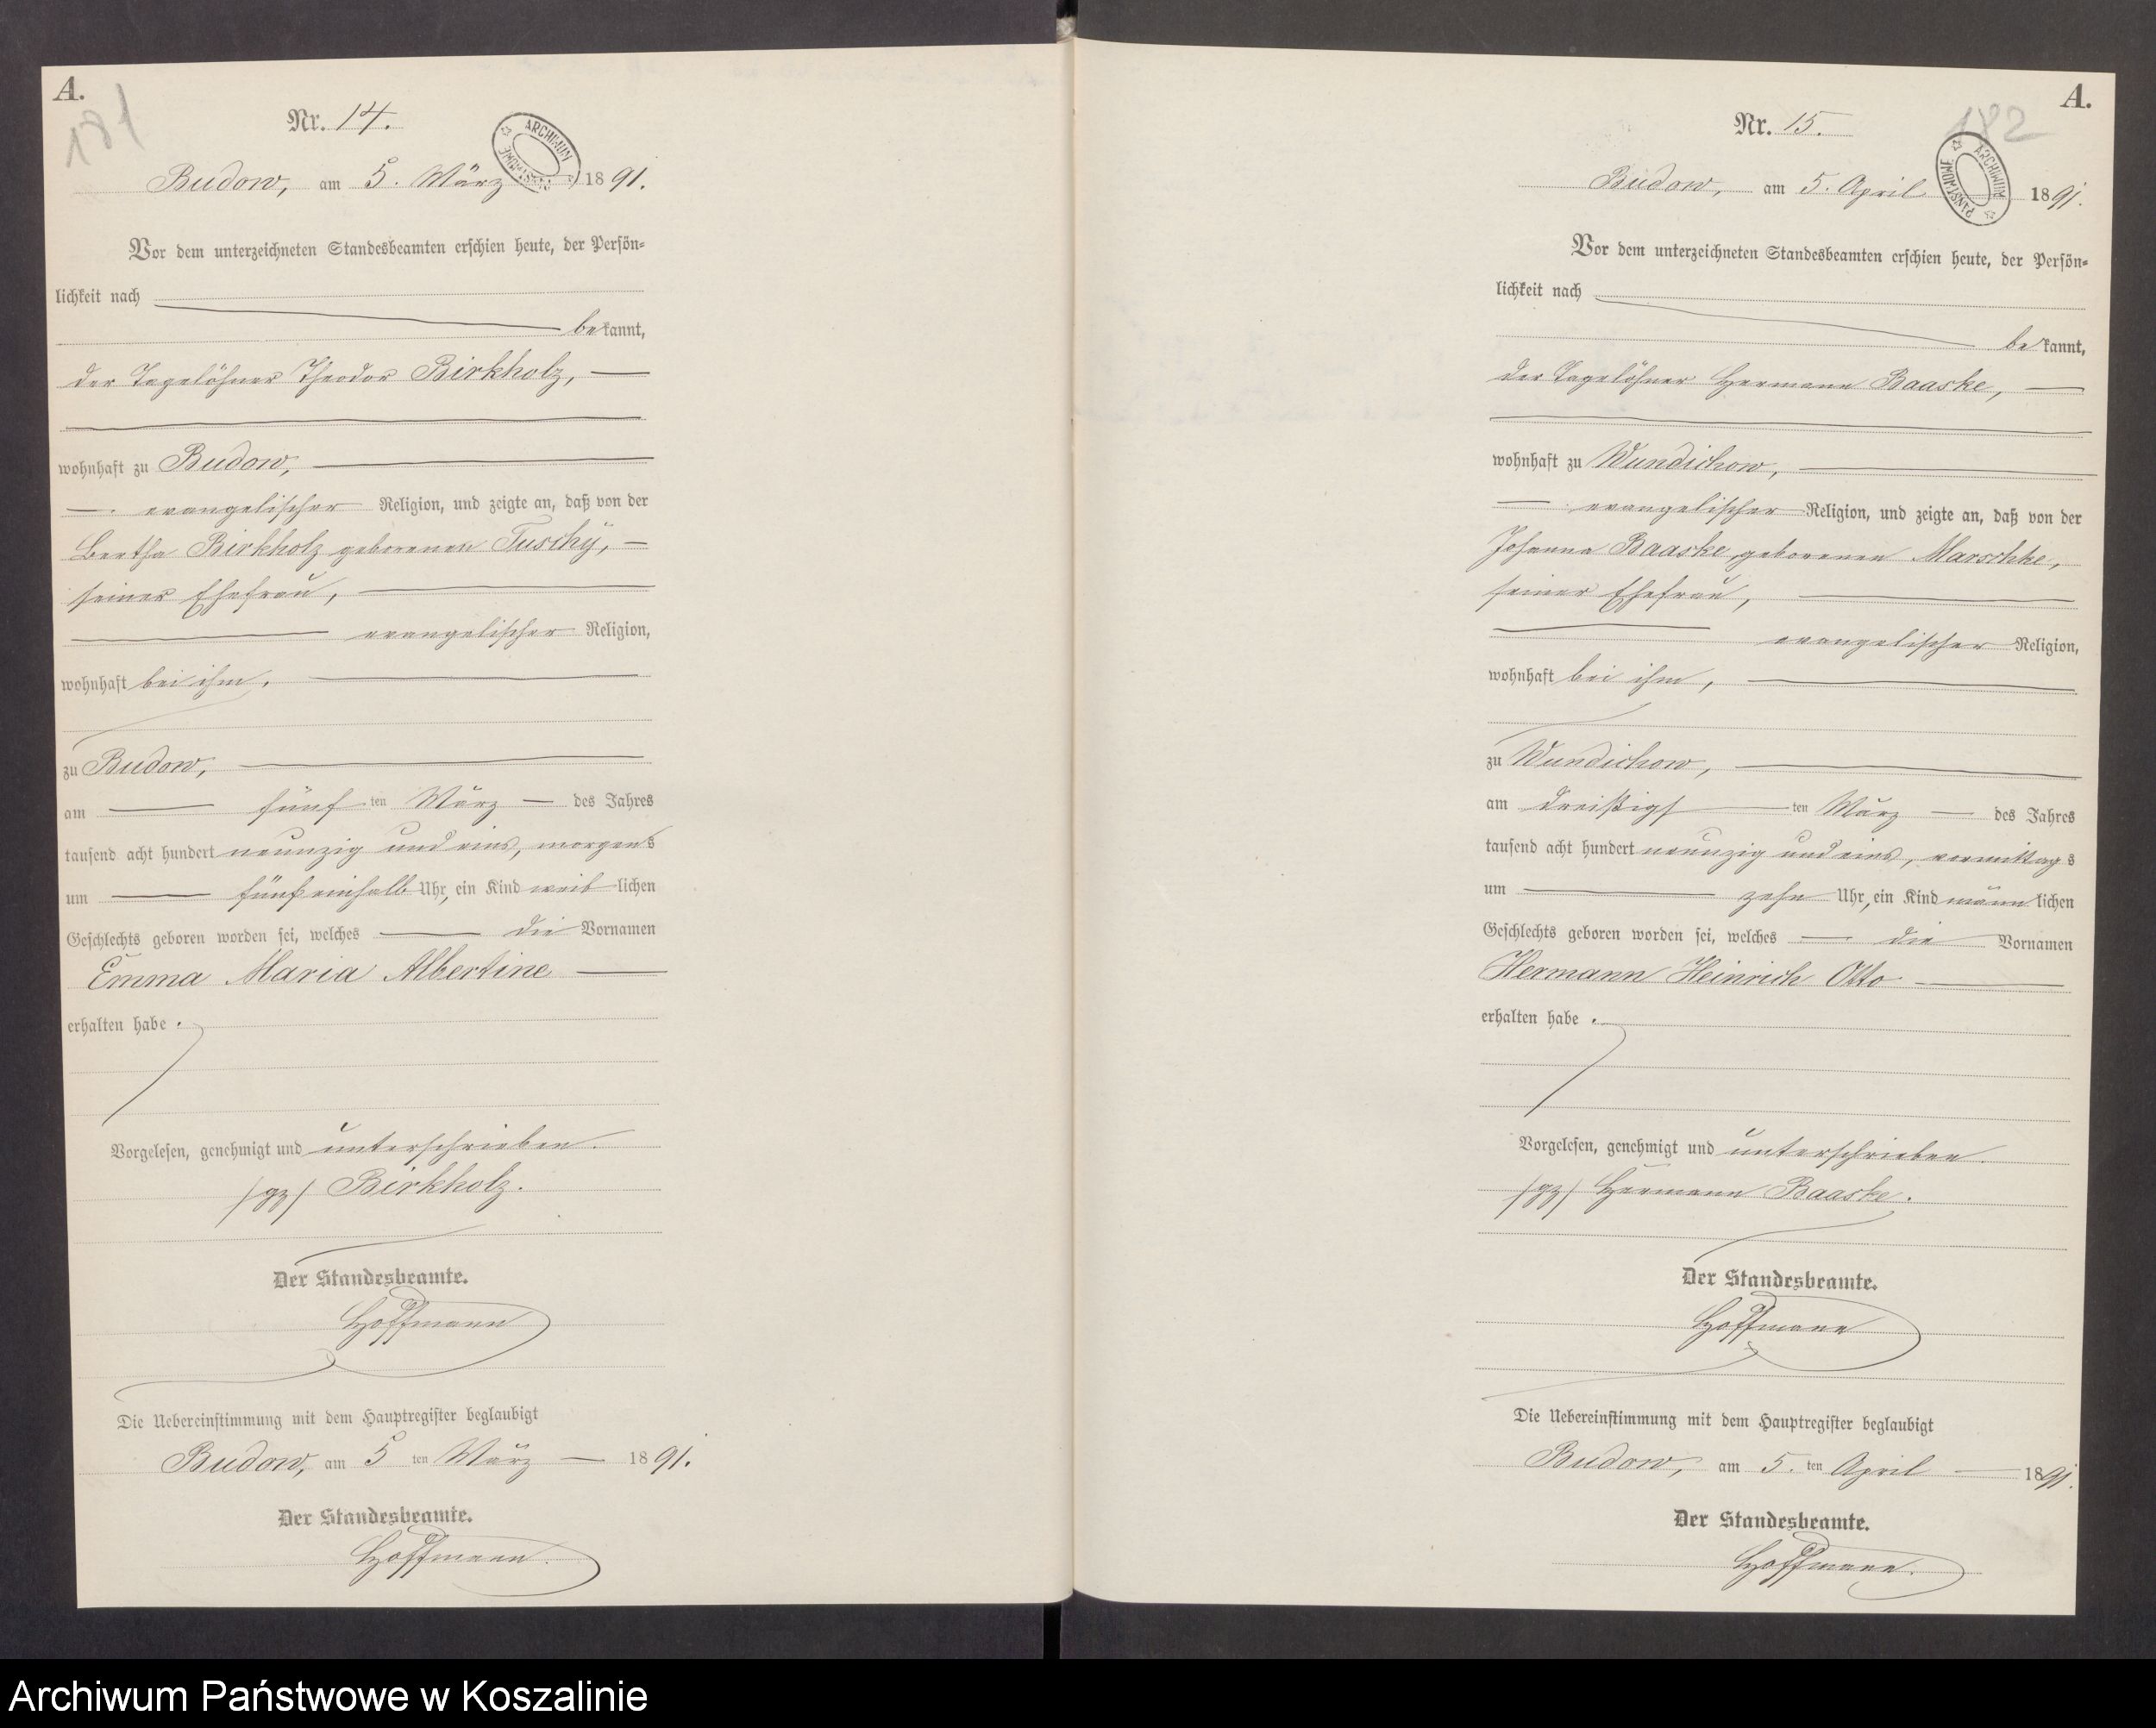 A.
181
Nr. 14.
ARCHIWUM PAŃSTWOWE
Budow, am 5. März 1891.
Vor dem unterzeichneten Standesbeamten erschien heute, der Persön-
lichkeit nach
bekannt,
der Tagelöhner Theodor Birkholz,
wohnhaft zu Budow,
evangelischer Religion, und zeigte an, daß von der
Bertha Birkholz geborenen Tuschy,
seiner Ehefrau,
evangelischer Religion,
wohnhaft bei ihm,
zu Budow,
am fünf ten März des Jahres
tausend acht hundert neunzig und eins, morgens
um fünfeinhalb Uhr, ein Kind weiblichen
Geschlechts geboren worden sei, welches die Vornamen
Emma Maria Albertine
erhalten habe.
Vorgelesen, genehmigt und unterschrieben.
/gz/ Birkholz.
Der Standesbeamte.
Hoffmann
Die Uebereinstimmung mit dem Hauptregister beglaubigt
Budow, am 5 ten März 1891.
Der Standesbeamte.
Hoffmann.
A.
182
Nr. 15.
ARCHIWUM PAŃSTWOWE
Budow, am 5. April 1891.
Vor dem unterzeichneten Standesbeamten erschien heute, der Persön-
lichkeit nach
bekannt,
der Tagelöhner Hermann Baaske,
wohnhaft zu Wundichow,
evangelischer Religion, und zeigte an, daß von der
Johanna Baaske, geborenen Marschke,
seiner Ehefrau,
evangelischer Religion,
wohnhaft bei ihm,
zu Wundichow,
am dreißigs ten März des Jahres
tausend acht hundert neunzig und eins, vormittags
um zehn Uhr, ein Kind männlichen
Geschlechts geboren worden sei, welches die Vornamen
Hermann Heinrich Otto
erhalten habe.
Vorgelesen, genehmigt und unterschrieben.
/gz/ Hermann Baaske.
Der Standesbeamte.
Hoffmann
Die Uebereinstimmung mit dem Hauptregister beglaubigt
Budow, am 5. ten April 1891.
Der Standesbeamte.
Hoffmann.
Archiwum Państwowe w Koszalinie